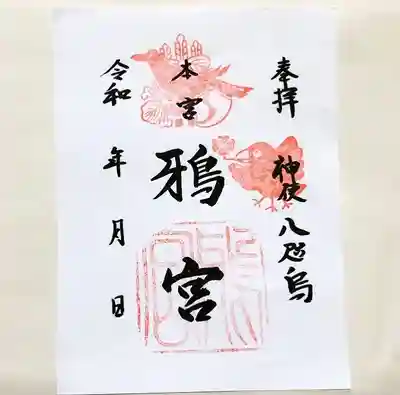 奉拝
神使八咫烏
本宮
鴉宮
令和 年 月 日